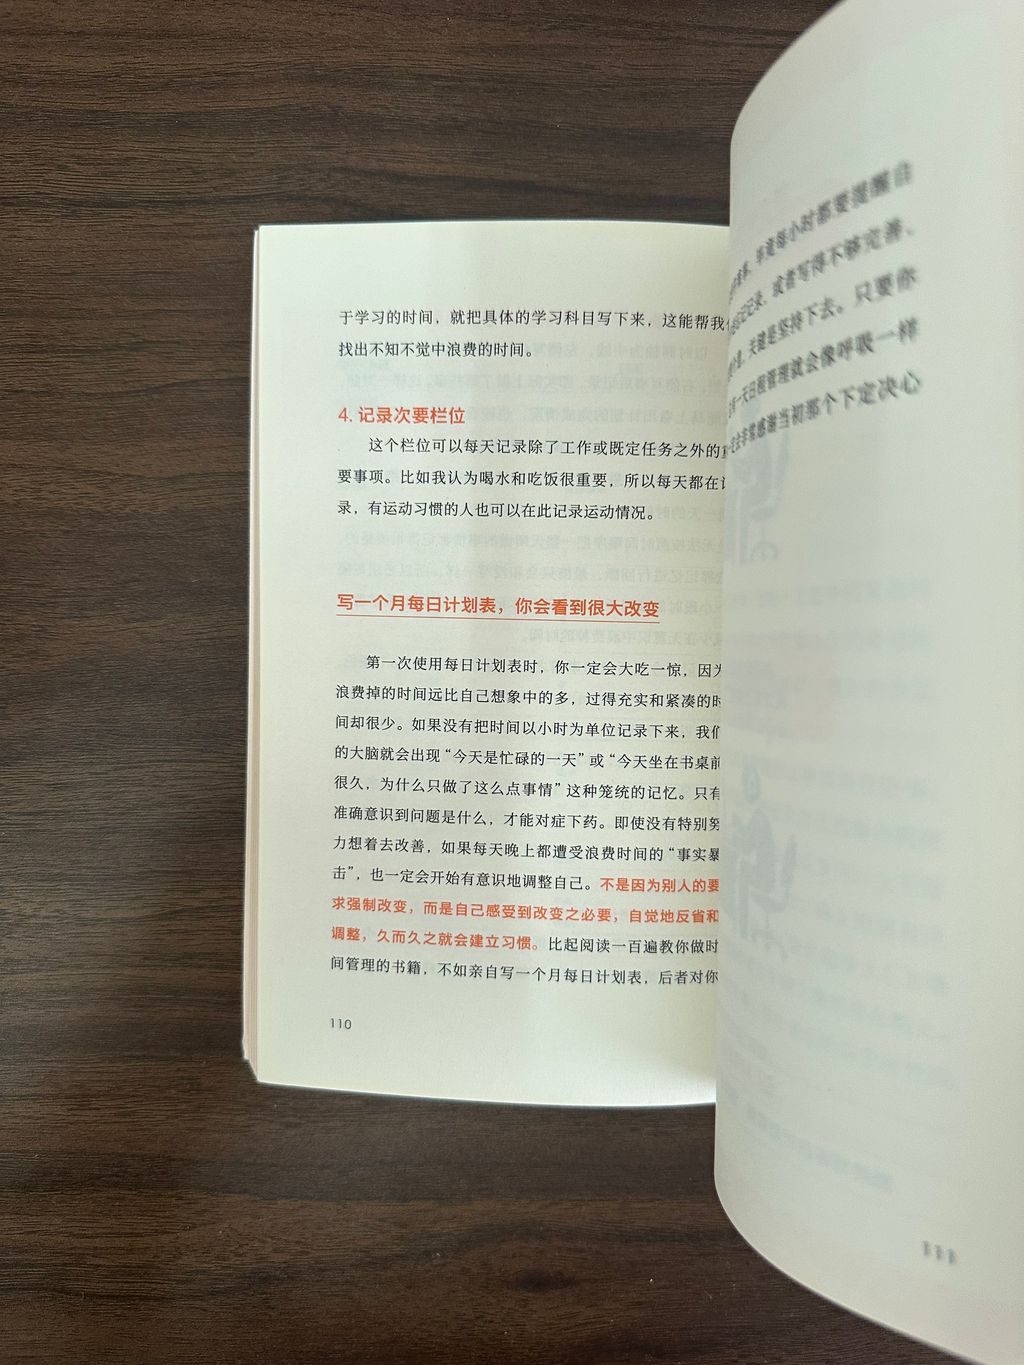 于学习的时间，就把具体的学习科目写下来，这能帮我
找出不知不觉中浪费的时间。
4. 记录次要栏位
这个栏位可以每天记录除了工作或既定任务之外的
要事项。比如我认为喝水和吃饭很重要，所以每天都在
录，有运动习惯的人也可以在此记录运动情况。
写一个月每日计划表，你会看到很大改变
第一次使用每日计划表时，你一定会大吃一惊，因为
浪费掉的时间远比自己想象中的多，过得充实和紧凑的时
间却很少。如果没有把时间以小时为单位记录下来，我们
的大脑就会出现“今天是忙碌的一天”或“今天坐在书桌前
很久，为什么只做了这么点事情”这种笼统的记忆。只有
准确意识到问题是什么，才能对症下药。即使没有特别努
力想着去改善，如果每天晚上都遭受浪费时间的“事实暴
击”，也一定会开始有意识地调整自己。不是因为别人的要
求强制改变，而是自己感受到改变之必要，自觉地反省和
调整，久而久之就会建立习惯。比起阅读一百遍教你做时
间管理的书籍，不如亲自写一个月每日计划表，后者对你
110
事，毕竟每小时都要提醒自
记录，或者写得不够完善、
关键是坚持下去。只要你
一天日程管理就会像呼吸一样
会非常感谢当初那个下定决心
111